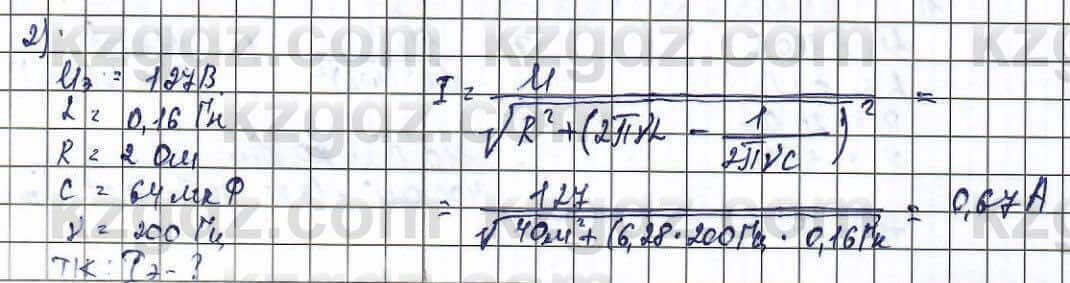 2)
Uэ = 127В
L = 0,16 Гн
R = 2 Ом
C = 64 мкФ
ν = 200 Гц
TK: Iэ - ?
I = U / √R² + (2πνL - 1/2πνC)² =
= 127 / √4Ом² + (6,28 · 200Гц · 0,16Гн = 0,67А
kzgdz.com